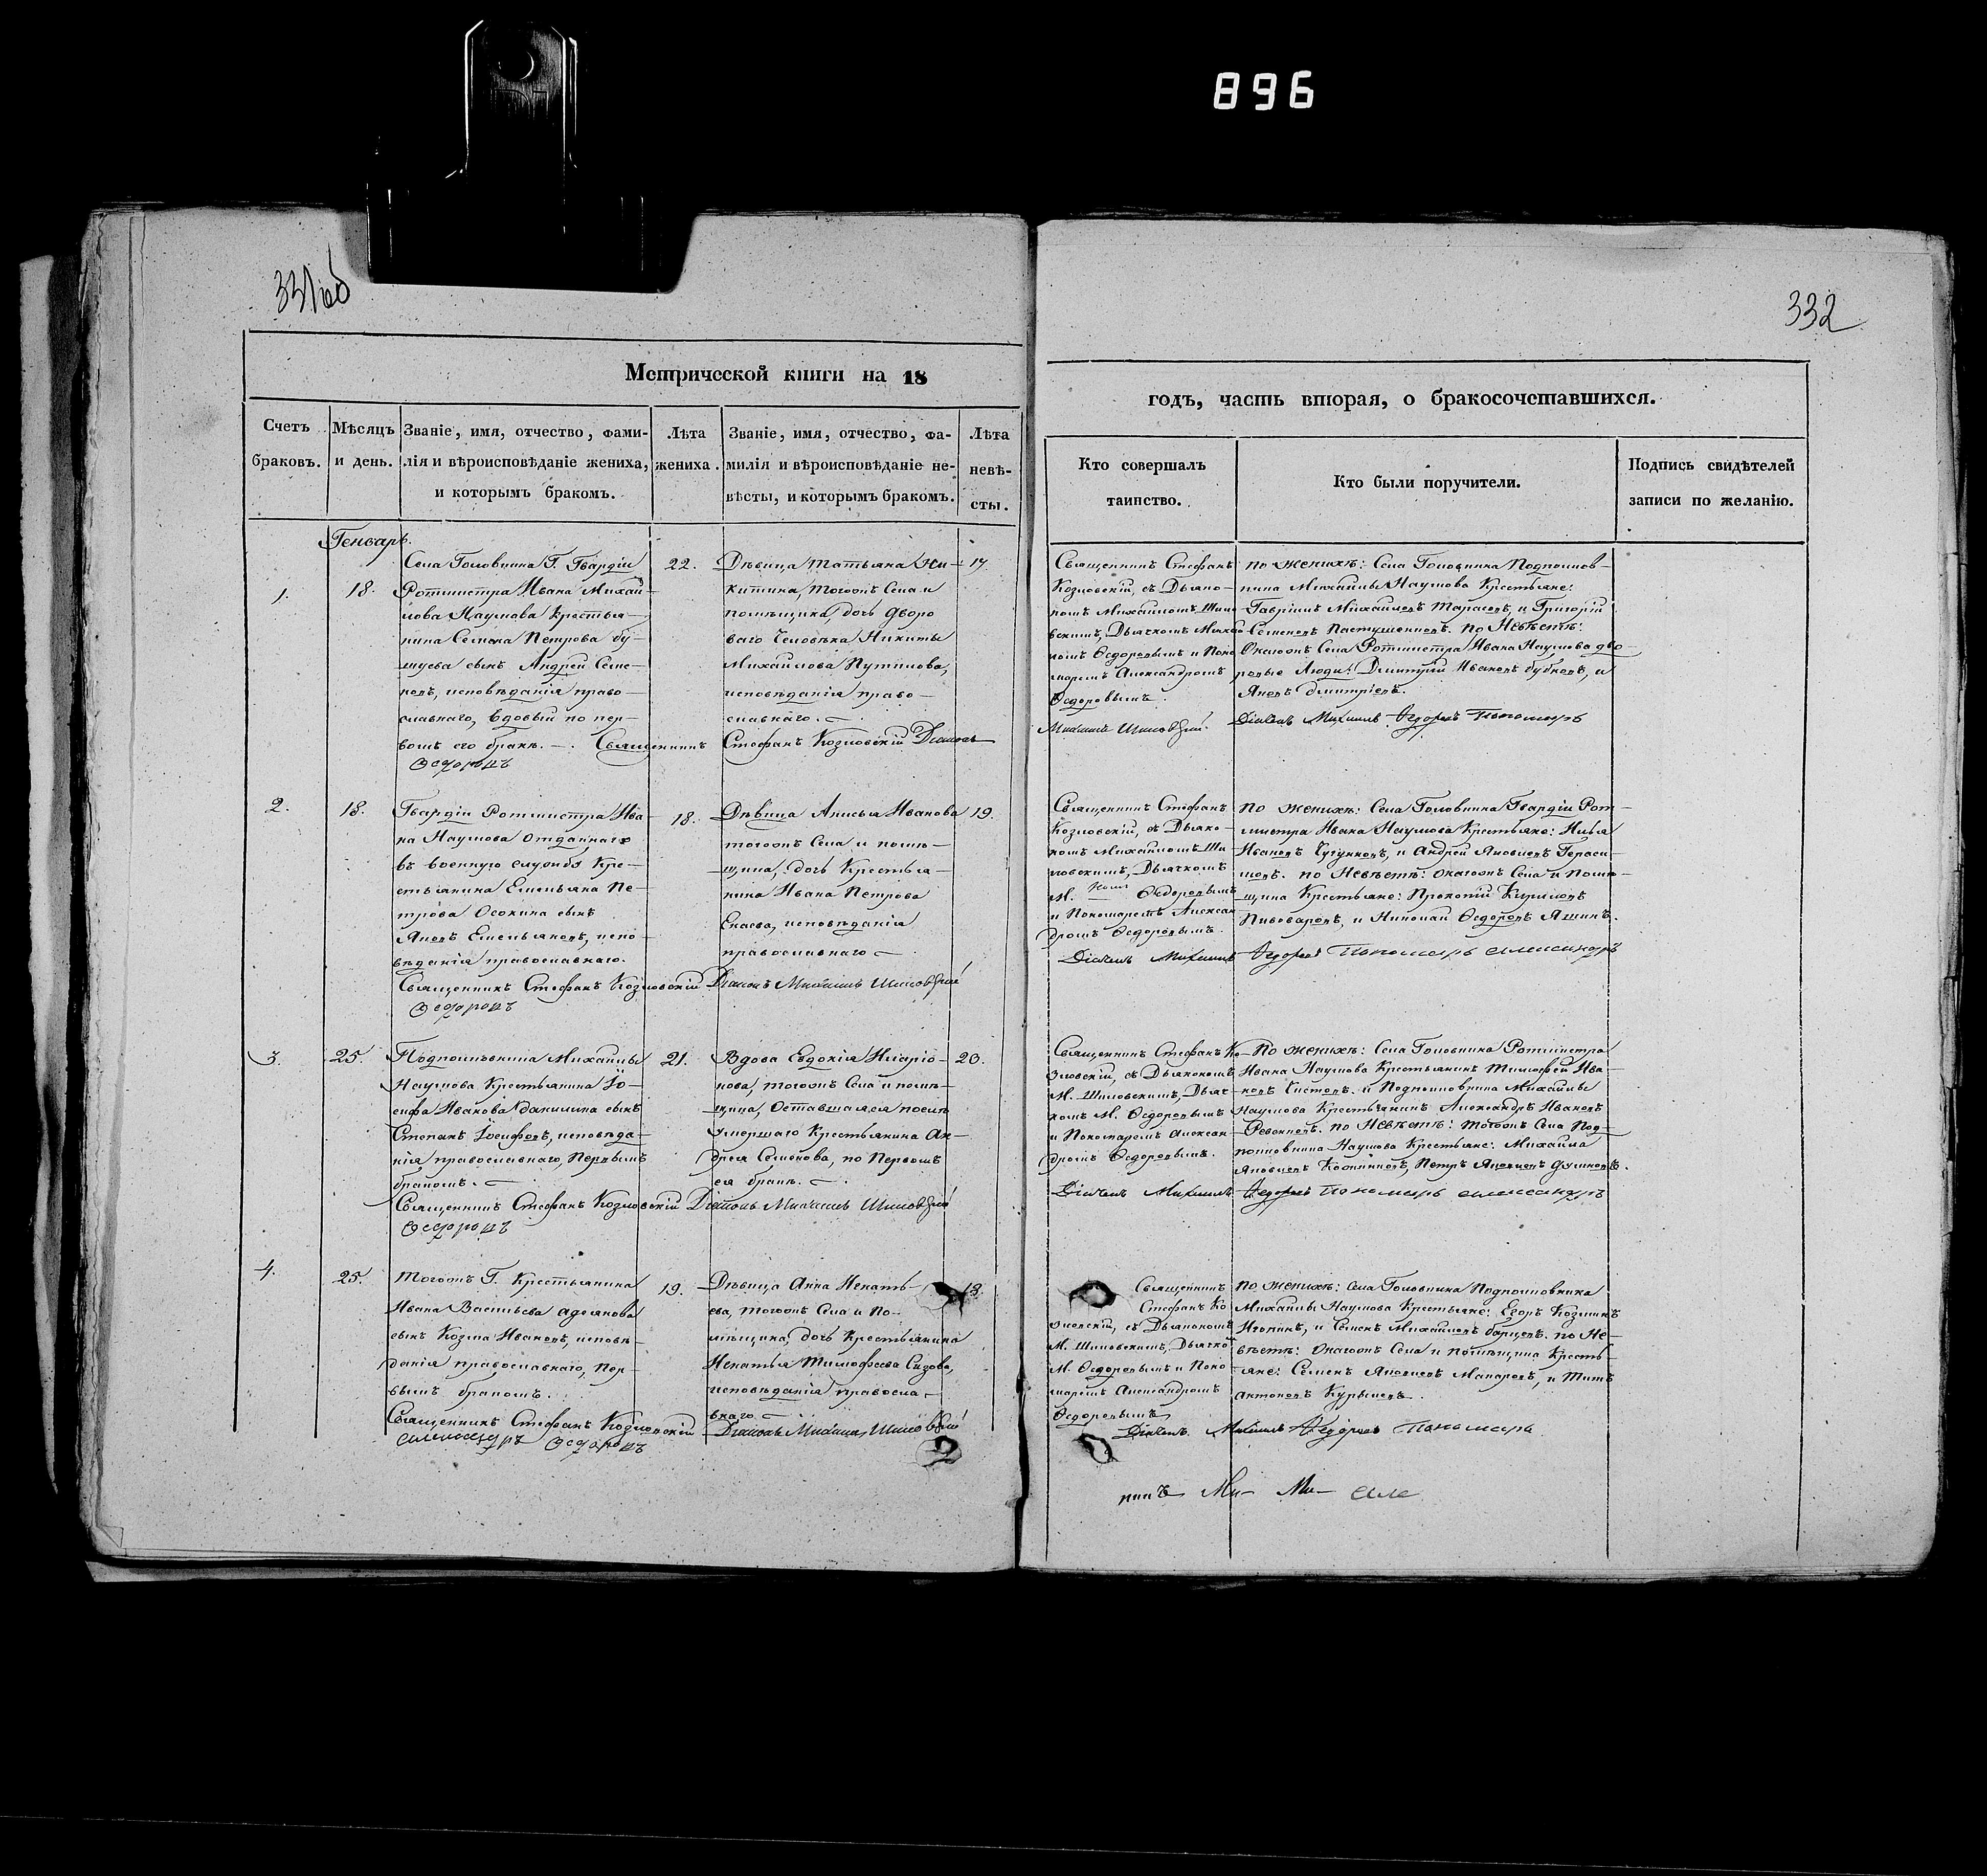 896
331об
332
Метрической книги на 18
годъ, часть вторая, о бракосочетавшихся.
Счетъ браковъ.
Мѣсяцъ и день.
Званіе, имя, отчество, фами-
лія и вѣроисповѣданіе жениха,
и которымъ бракомъ.
Лѣта
жениха.
Званіе, имя, отчество, фа-
милія и вѣроисповѣданіе не-
вѣсты, и которымъ бракомъ.
Лѣта
невѣ-
сты.
Кто совершалъ
таинство.
Кто были поручители.
Подпись свидѣтелей
записи по желанію.
Генварь.
1.
18.
Села Головнина Г. Гвардіи
Ротмистра Ивана Михай-
лова Наумова Крестья-
нина Семена Петрова бу-
шуева сынъ Андрей Семе-
новъ, исповѣданія право-
славнаго, вдовый по пер-
вомъ его бракѣ.
22.
Дѣвица Татьяна Ни-
китина, тогожъ Села и
помѣщика, дочь дворо
ваго Человѣка Никиты
Михайлова Путилова,
исповѣданія право-
славнаго.
17
Священникъ Стефанъ Козловскій Діаконъ
Ѳедоровъ
Священникъ Стефанъ
Козловскій, съ Дьяко-
номъ Михаиломъ Шило
вскимъ, Дьячкомъ Михаи
ломъ Ѳедоровымъ и Поно
маремъ Александромъ
Ѳедоровымъ
Михаилъ Шиловскій.
по женихѣ: Села Головнина Подполков-
ника Михаилы Наумова Крестьяне:
Гаврiилъ Михайловъ Тарасовъ, и Григорій
Семеновъ Пастушенковъ. по Невѣстѣ:
Онагожъ Села Ротмистра Ивана Наумова дво-
ровые Люди: Дмитрій Ивановъ бубновъ, и
Яковъ Дмитріевъ.
Дiачекъ Михаилъ Ѳедоровъ Пономарь
2.
18.
Гвардіи Ротмистра Ива-
на Наумова отданнаго
въ военную службу Кре-
стьянина Емельяна Пе-
трова Осокина сынъ
Яковъ Емельяновъ, испо-
вѣданія православнаго.
18.
Дѣвица Анисья Иванова
тогожъ Села и помѣ-
щика, дочь Крестья-
нина Ивана Петрова
Енаева, исповѣданія
православнаго
19.
Священникъ Стефанъ Козловскій Діаконъ Михаилъ Шиловскій
Ѳедоровъ
Священникъ Стефанъ
Козловскій, съ Дьяко-
номъ Михаиломъ Ши-
ловскимъ, Дьячкомъ
М. Ѳедоровымъ
и Пономаремъ Алексан
дромъ Ѳедоровымъ.
по женихѣ: Села Головнина Гвардіи Рот-
мистра Ивана Наумова Крестьяне: Илья
Ивановъ Чугунковъ, и Андрей Яковлевъ Гераси-
мовъ. по Невѣстѣ: онагожъ Села и помѣ-
щика Крестьяне: Прокопій Кириловъ
Пивоваровъ, и Николай Ѳедоровъ Яшинъ.
Дiачекъ Михаилъ Ѳедоровъ Пономарь Александръ
3.
25.
Подполковника Михаилы
Наумова Крестьянина Іо-
сифа Иванова Данилина сынъ
Степанъ Іосифовъ, исповѣда-
нія православнаго, Первымъ
бракомъ.
21.
Вдова Евдокія Иларіо-
нова, тогожъ Села и помѣ-
щика, Оставшаяся послѣ
Умершаго Крестьянина Ан-
дрея Семенова, по Первомъ
ея бракѣ.
20.
Священникъ Стефанъ Козловскій Діаконъ Михаилъ Шиловскій
Ѳедоровъ
Священникъ Стефанъ Ко-
зловскій, съ Дьякономъ
М. Шиловскимъ, Дьяч-
комъ М. Ѳедоровымъ
и Пономаремъ Алексан-
дромъ Ѳедоровымъ.
По женихѣ: Села Головнина Ротмистра
Ивана Наумова Крестьянинъ Тимофей Ива-
новъ Чистовъ. и Подполковника Михаилы
Наумова Крестьянинъ Александръ Ивановъ
Ревенковъ. по Невѣстѣ: тогожъ Села Под-
полковника Наумова Крестьяне: Михайла
Яковлевъ, Петръ Яковлевъ
Дiачекъ Михаилъ Ѳедоровъ Пономарь Александръ
4.
25.
Тогожъ Г. Крестьянина
Ивана Васильева
сынъ Козма Ивановъ, исповѣ-
данія православнаго, Пер-
вымъ бракомъ.
19.
Дѣвица Анна Игнать-
ева, тогожъ Села и По-
мѣщика, дочь Крестьянина
Игнатья Тимофеева Сизова,
исповѣданія правосла-
внаго.
18.
Священникъ Стефанъ Козловскій Діаконъ Михаилъ Шиловскій
Александръ Ѳедоровъ
Священникъ
Стефанъ Ко
зловскій, съ Дьякономъ
М. Шиловскимъ, Дьячко
М. Ѳедоровымъ и Поно
маремъ Александромъ
Ѳедоровымъ
по женихѣ: Села Головнина Подполковника
Михаилы Наумова Крестьяне: Егоръ Козминъ
и Семенъ Михайловъ барцевъ. по Не-
вѣстѣ: Онагожъ Села и помѣщика Кресть-
яне: Семенъ Яковлевъ Макаровъ, и Титъ
Антоновъ Курылевъ.
Дiачекъ Михаилъ Ѳедоровъ Пономарь
никъ Ми- Ми- Але